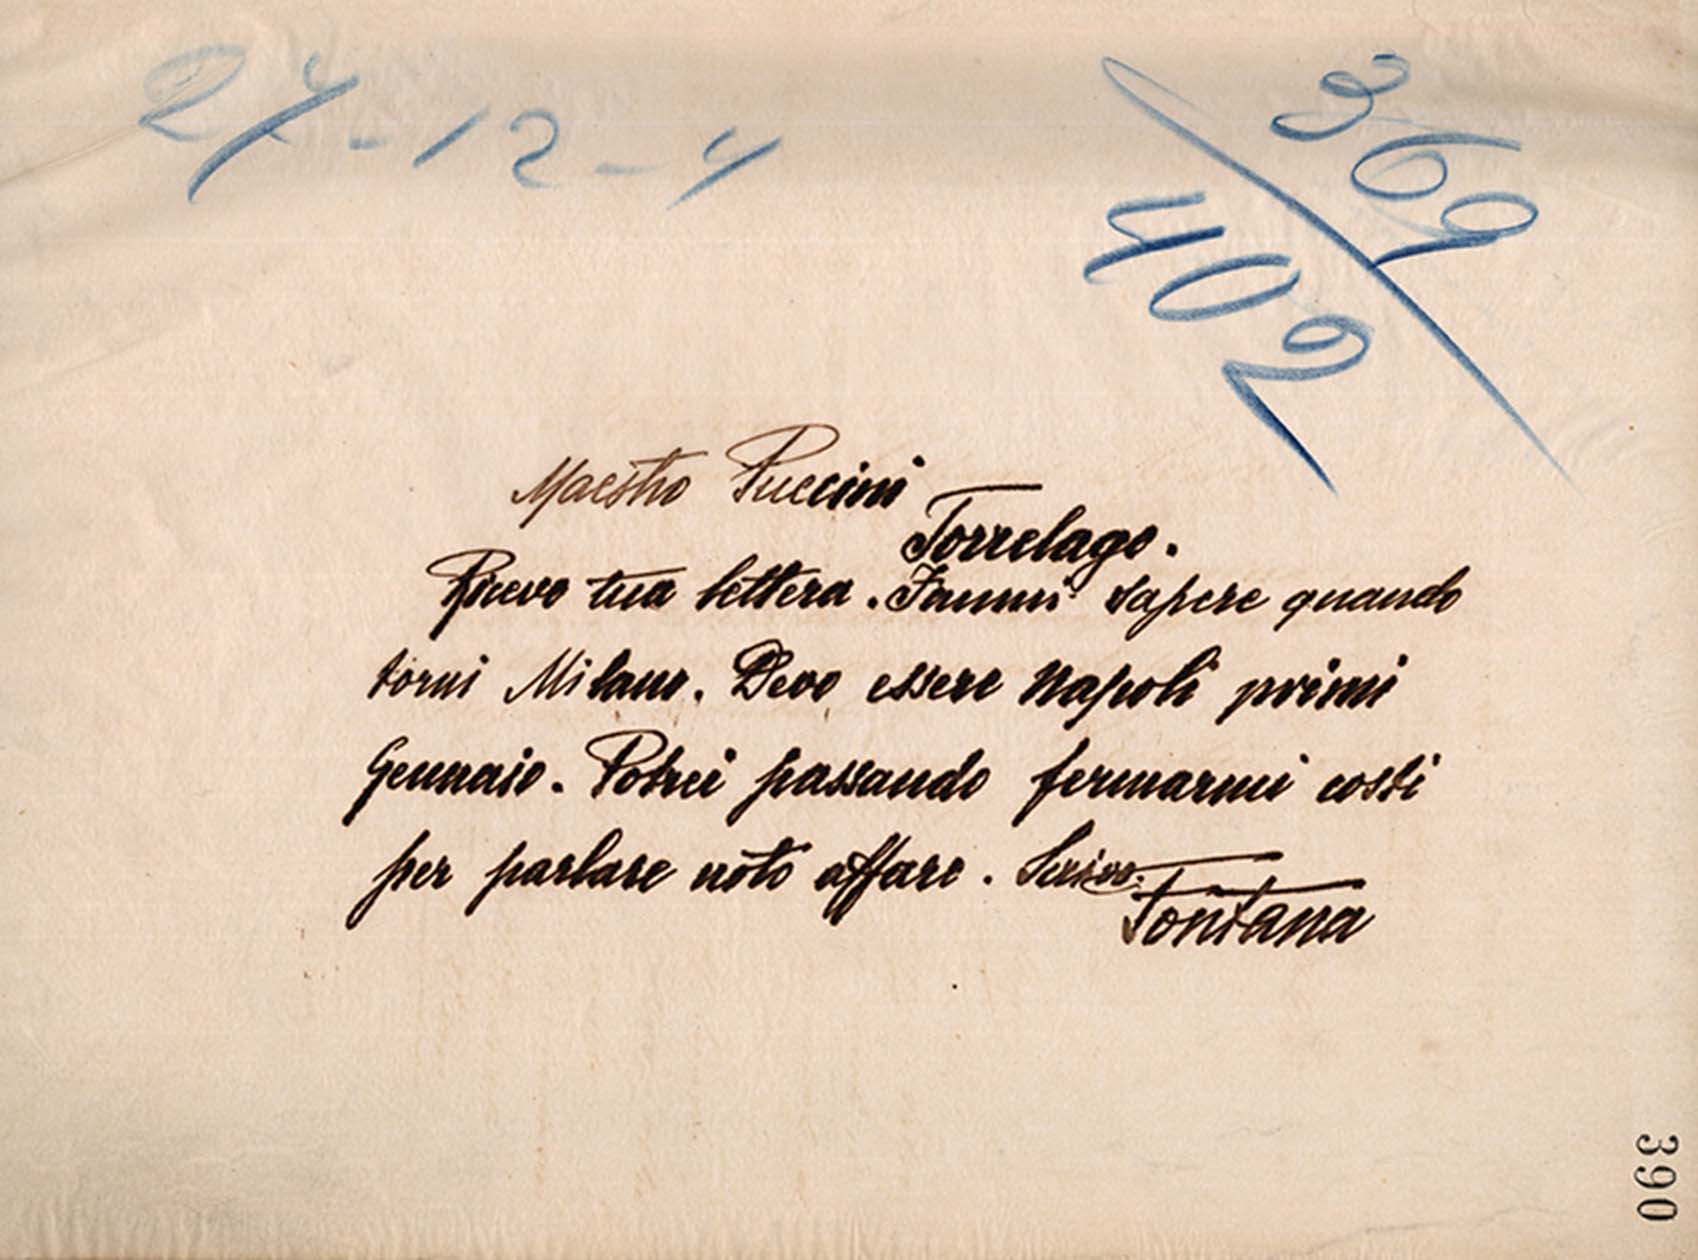 27-12-4
369
402
Maestro Puccini
Torrelago.
Ricevo tua lettera. Fammi sapere quando
torni Milano. Devo essere Napoli primi
Gennaio. Potrei passando fermarmi costi
per parlare noto affare. Scrivo.
Fontana
390